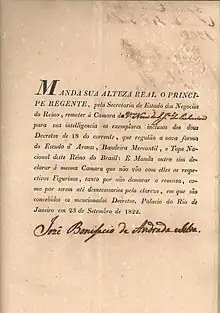 MANDA SUA ALTEZA REAL O PRINCI-
PE REGENTE, pela Secretaria de Estado dos Negocios
do Reino, remeter á Camara da
para sua intelligencia os exemplares inclusos dos dous
Decretos de 18 do corrente, que regulão a nova forma
do Escudo d' Armas, Bandeira Mercantil, e Tope Na-
cional deste Reino do Brasil: E Manda outro sim de-
clarar á mesma Camara que não vão com elles os respe-
ctivos Figurinos, tanto por não demorar a remessa, co-
mo por serem até desnecessarios pela clareza, em que são
concebidos os mencionados Decretos. Palacio do Rio de
Janeiro em 23 de Setembro de 1822.
José Bonifacio de Andrada e Silva.